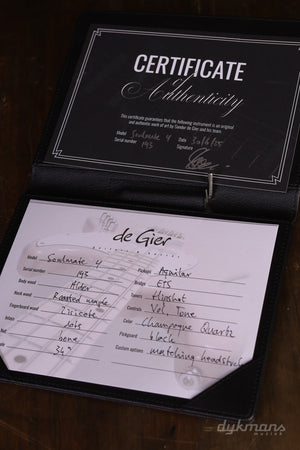 CERTIFICATE
of Authenticity
This certificate guarantees that the following instrument is an original
and authentic work of art by Sander de Gier and his team.
Model Soulmate 4 Date
Serial number 193 Signature
de Gier
Model Soulmate 4
Serial number 193
Body wood Alder
Neck wood Roasted maple
Fingerboard wood Ziricote
bone
34"
Pickups Aguilar
Bridge ETS
Tuners Hipshot
Controls Vol, Tone
Color Champagne Quartz
Pickguard black
Custom options matching headstock
dykmans
muziek